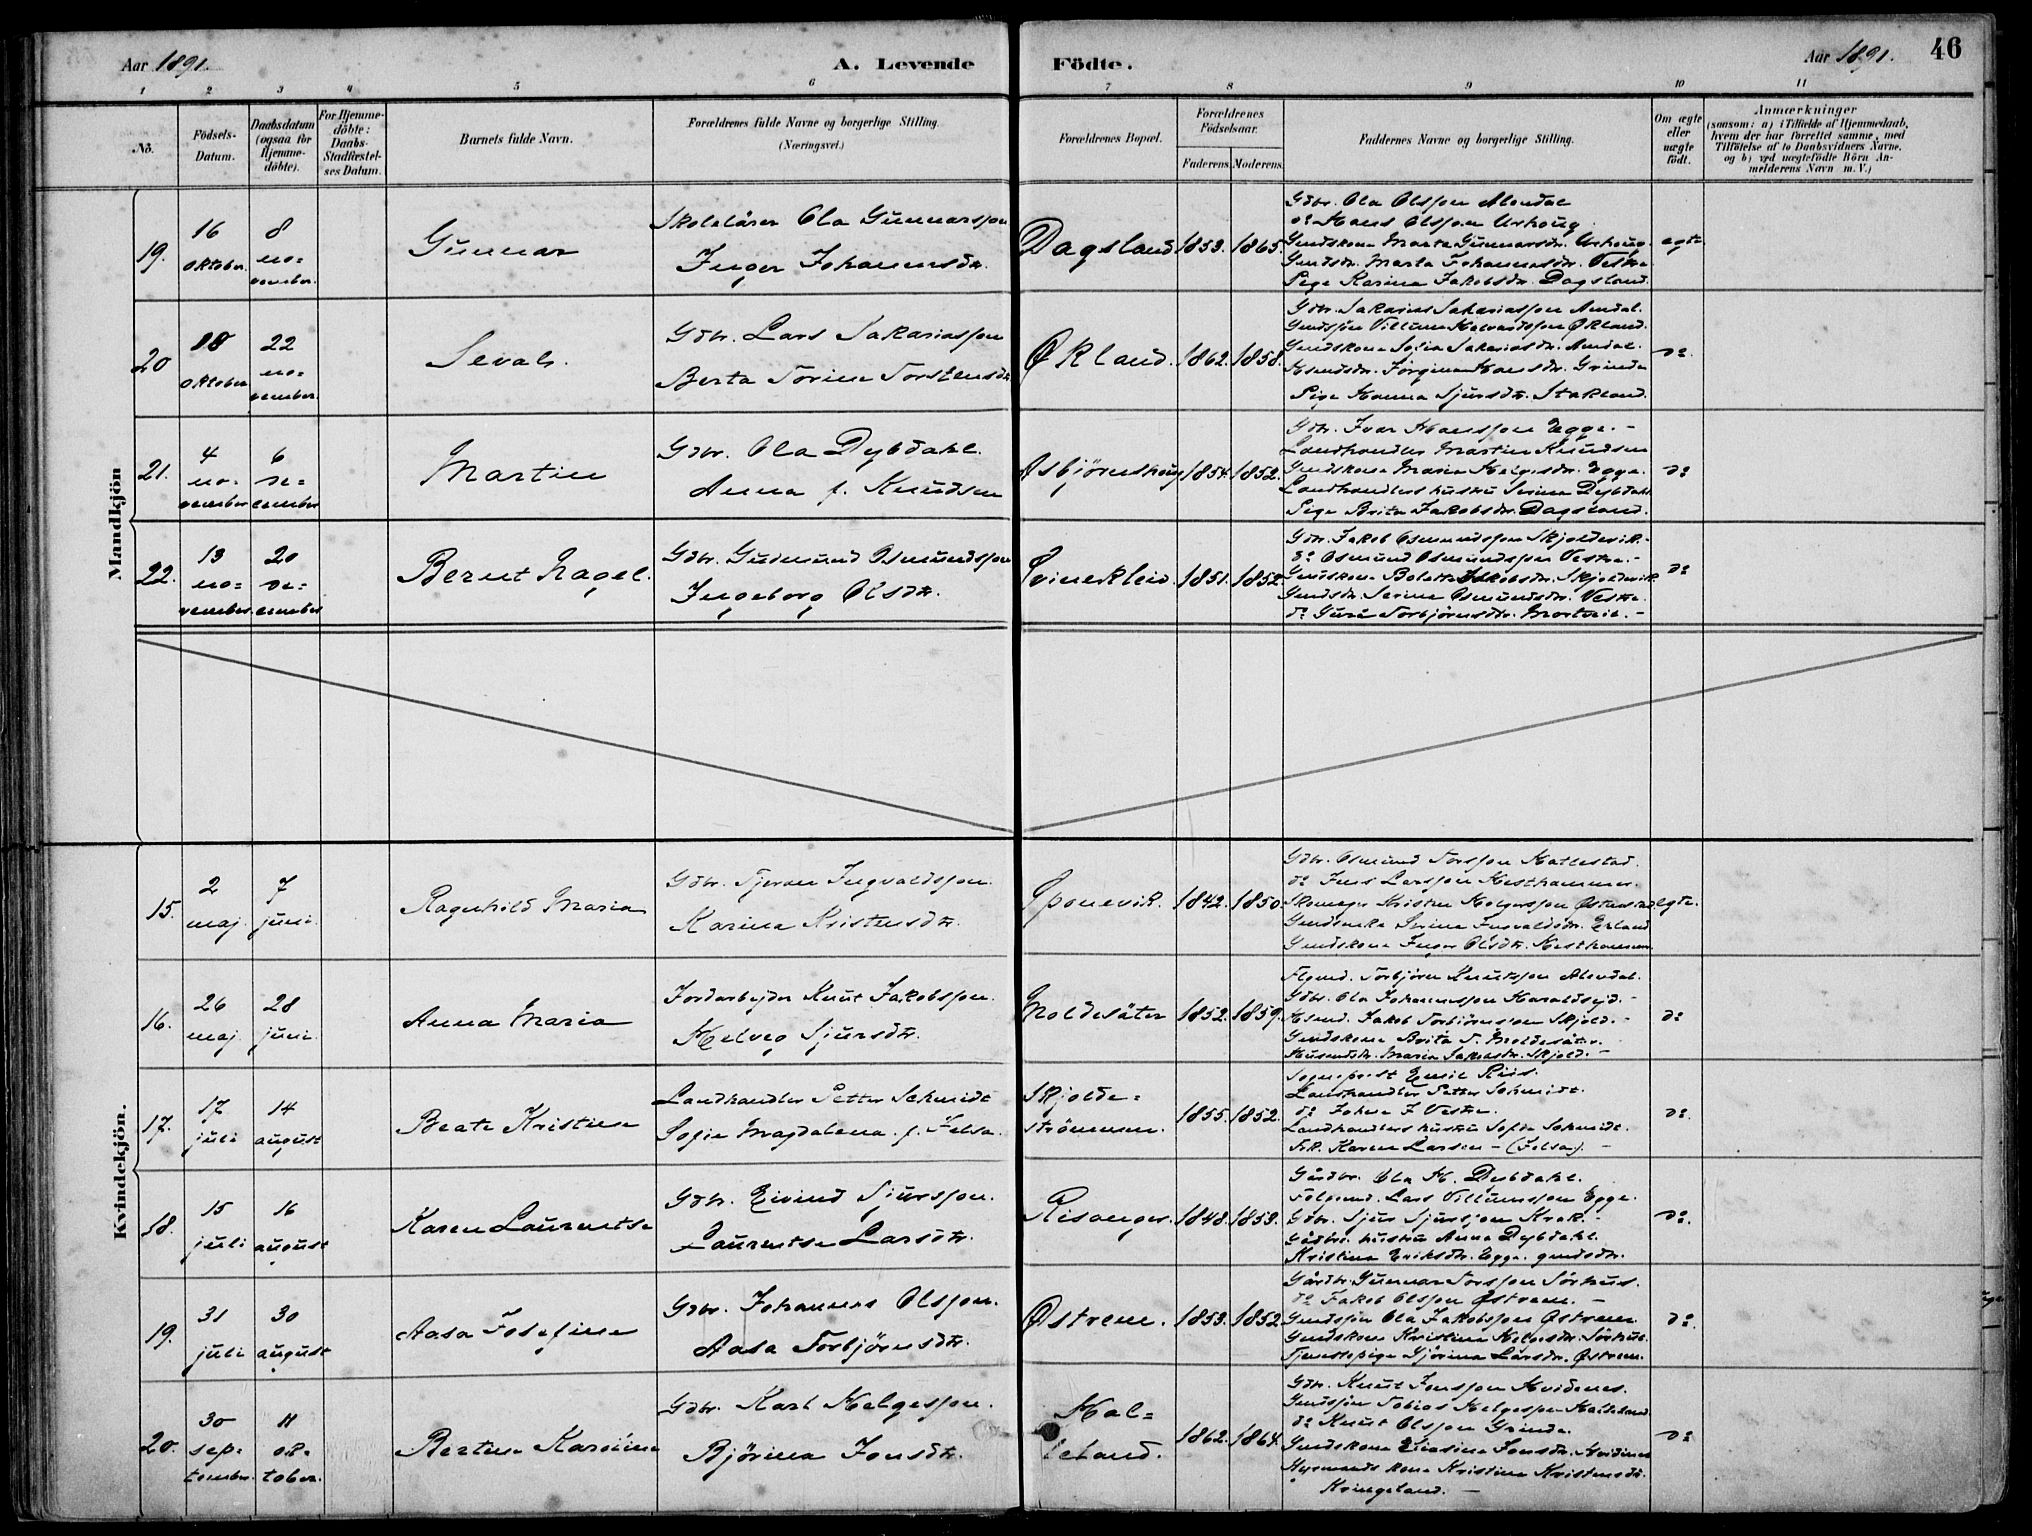 Aar 1891.
A. Levende Födte.
Aar 1891.
46
1 2 3 4 5 6 7 8 9 10 11
No.
Födsels-
Datum.
Daabsdatum
(ogsaa for
Hjemme-
döbte).
For Hjemme-
döbte:
Daabs-
Stadfæstel-
ses Datum.
Barnets fulde Navn.
Forældrenes fulde Navne og borgerlige Stilling
(Næringsvei.)
Forældrenes Bopæl.
Forældrenes
Födselsaar.
Faderens.
Moderens.
Faddernes Navne og borgerlige Stilling.
Om ægte
eller
uægte
födt.
Anmærkninger
(saasom: a) i Tilfælde af Hjemmedaab,
hvem der har forrettet samme, med
Tilföielse af to Daabsvidners Navne,
og b) ved uægtefödte Börn An-
melderens Navn m. V.)
Mandkjön
19.
16
oktober.
8
no=
vember.
Gunnar
Skolelärer Ola Gunnarsson
Inger Johannesdtr.
Dagsland
1853.
1865.
Gdbr. Ola Olsson Alendal
do Hans Olsson Urhoug
Gmdskone Marta Gunnarsdr. Urhoug.
Gmdsdr. Marta Johannesdr. Vestre
Pige Karina Jakobsdr. Dagsland.
egte
20
18
oktober
22
no=
vember.
Sevals.
Gdbr. Lars Sakariasson
Berta Torine Torstensdtr
Økland.
1862.
1858.
Gdbr. Sakarias Sakariasson Amdal.
Gmdssön Villum Halvardsson Økland.
Gmdskone Sofia Sakariasdr. Amdal.
Hsmdsdr. Jorgina Hansdr. Grinde
Pige Hanna Sjursdtr. Stakland.
do.
21.
4
no=
vember
6
de=
cember
Martin
Gdbr. Ola Dybdahl.
Anna f. Knudsen
Asbjörnshoug
1854.
1852.
Gdbr. Ivar Hansson Egge. -
Landhandler Martin Knudsen
Gmdskone Maria Helgesdr. Egge.
Landhandlers hustru Serina Dybdahl
Pige Brita Jakobsdr. Dagsland.
do
22.
13
no=
vember.
20
de=
cember
Bernt Nagel.
Gdbr. Gudmund Osmundsson
Ingeborg Olsdtr.
Svinekleiv.
1851.
1852.
Gdbr. Jakob Osmundsson Skjoldevik.
do Osmund Osmundsson Vestre. -
Gmdskone Bolette Jakobsdr. Skjoldevik
Gmdsdr. Serine Osmundsdr. Vestre.
do Guri Torbjörnsdr. Mortveit. -
do
Kvindekjön.
15.
2
maj.
7
juni
Ragnhild Maria
Gdbr. Tjeran Ingvaldsson.
Karina Kristensdtr.
Sponevik.
1842.
1850
Gdbr. Osmund Torsson Hattestad.
do Jens Larsson Hesthammer.
Skomager Kristen Holgersson Østenstad
Gmdsenke Serina Ingvaldsdr. Erland
Gmdskone Inger Olsdtr. Hesthammer.
egte.
16.
26
maj.
28
juni.
Anna Maria
Jordarbejder Knut Jakobsson.
Helveg Sjursdtr.
Moldesäter
1852.
1859.
Flgmd. Torbjörn Knutsson Alendal.
Gdbr. Ola Johannesson Haraldsejd. -
Hsmd. Jakob Torbjörnsson Skjold. -
Gmdskone Brita T. Moldesäter.
Husmdsdr. Maria Jakobsdr. Skjold. -
do
17.
17
juli
14
august
Beate Kristine
Landhandler Petter Schmidt
Sofie Magdalena f. Jelsa.
Skjolde=
strömmen.
1855.
1852.
Sogneprest Emil Riis.
Landhandler Petter Schmidt.
do Johan J. Vestre.
Landhandlers hustru Sofie Schmidt.
Frk. Karen Larsen - (Jelsa). -
do.
18.
15
juli
16
august
Karen Laurentse
Gdbr. Eivind Sjursson.
Laurentse Larsdtr.
Risanger.
1848.
1859.
Gårdbr. Ola K. Dybdahl.
Folgemd. Lars Villumsson Egge.
Gdbr. Sjur Sjursson Krak. -
Gårdbr. hustru Anna Dybdahl.
Kristina Eriksdtr. Egge. gmdsdtr.
do.
19.
31
juli
30
august
Aasa Josefine
Gdbr. Johannes Olsson.
Aasa Torbjörnsdtr.
Østrem.
1853.
1852
Gårdbr. Gunnar Torsson Sörhus.
do Jakob Olsson Østrem. -
Gmdssön Ola Jakobsson Østrem
Gmdskone Kristina Helgesdr. Sörhus.
Tjenestepige Björina Larsdr. Østrem.
do.
20.
30
sep-
tember.
11
ok-
tober.
Bertine Karoline
Gdbr. Karl Helgesson.
Björina Jonsdtr.
Hal=
leland.
1862.
1864.
Gdbr. Knut Jonsson Hvidenes.
Gmdssön Tobias Helgesson Halleland.
do Knut Olsson Grinde.
Gmdskone Eliasina Jonsdr. Hvidenes
Husmands kone Kristina Kristensdtr.
Kringeland. -
do